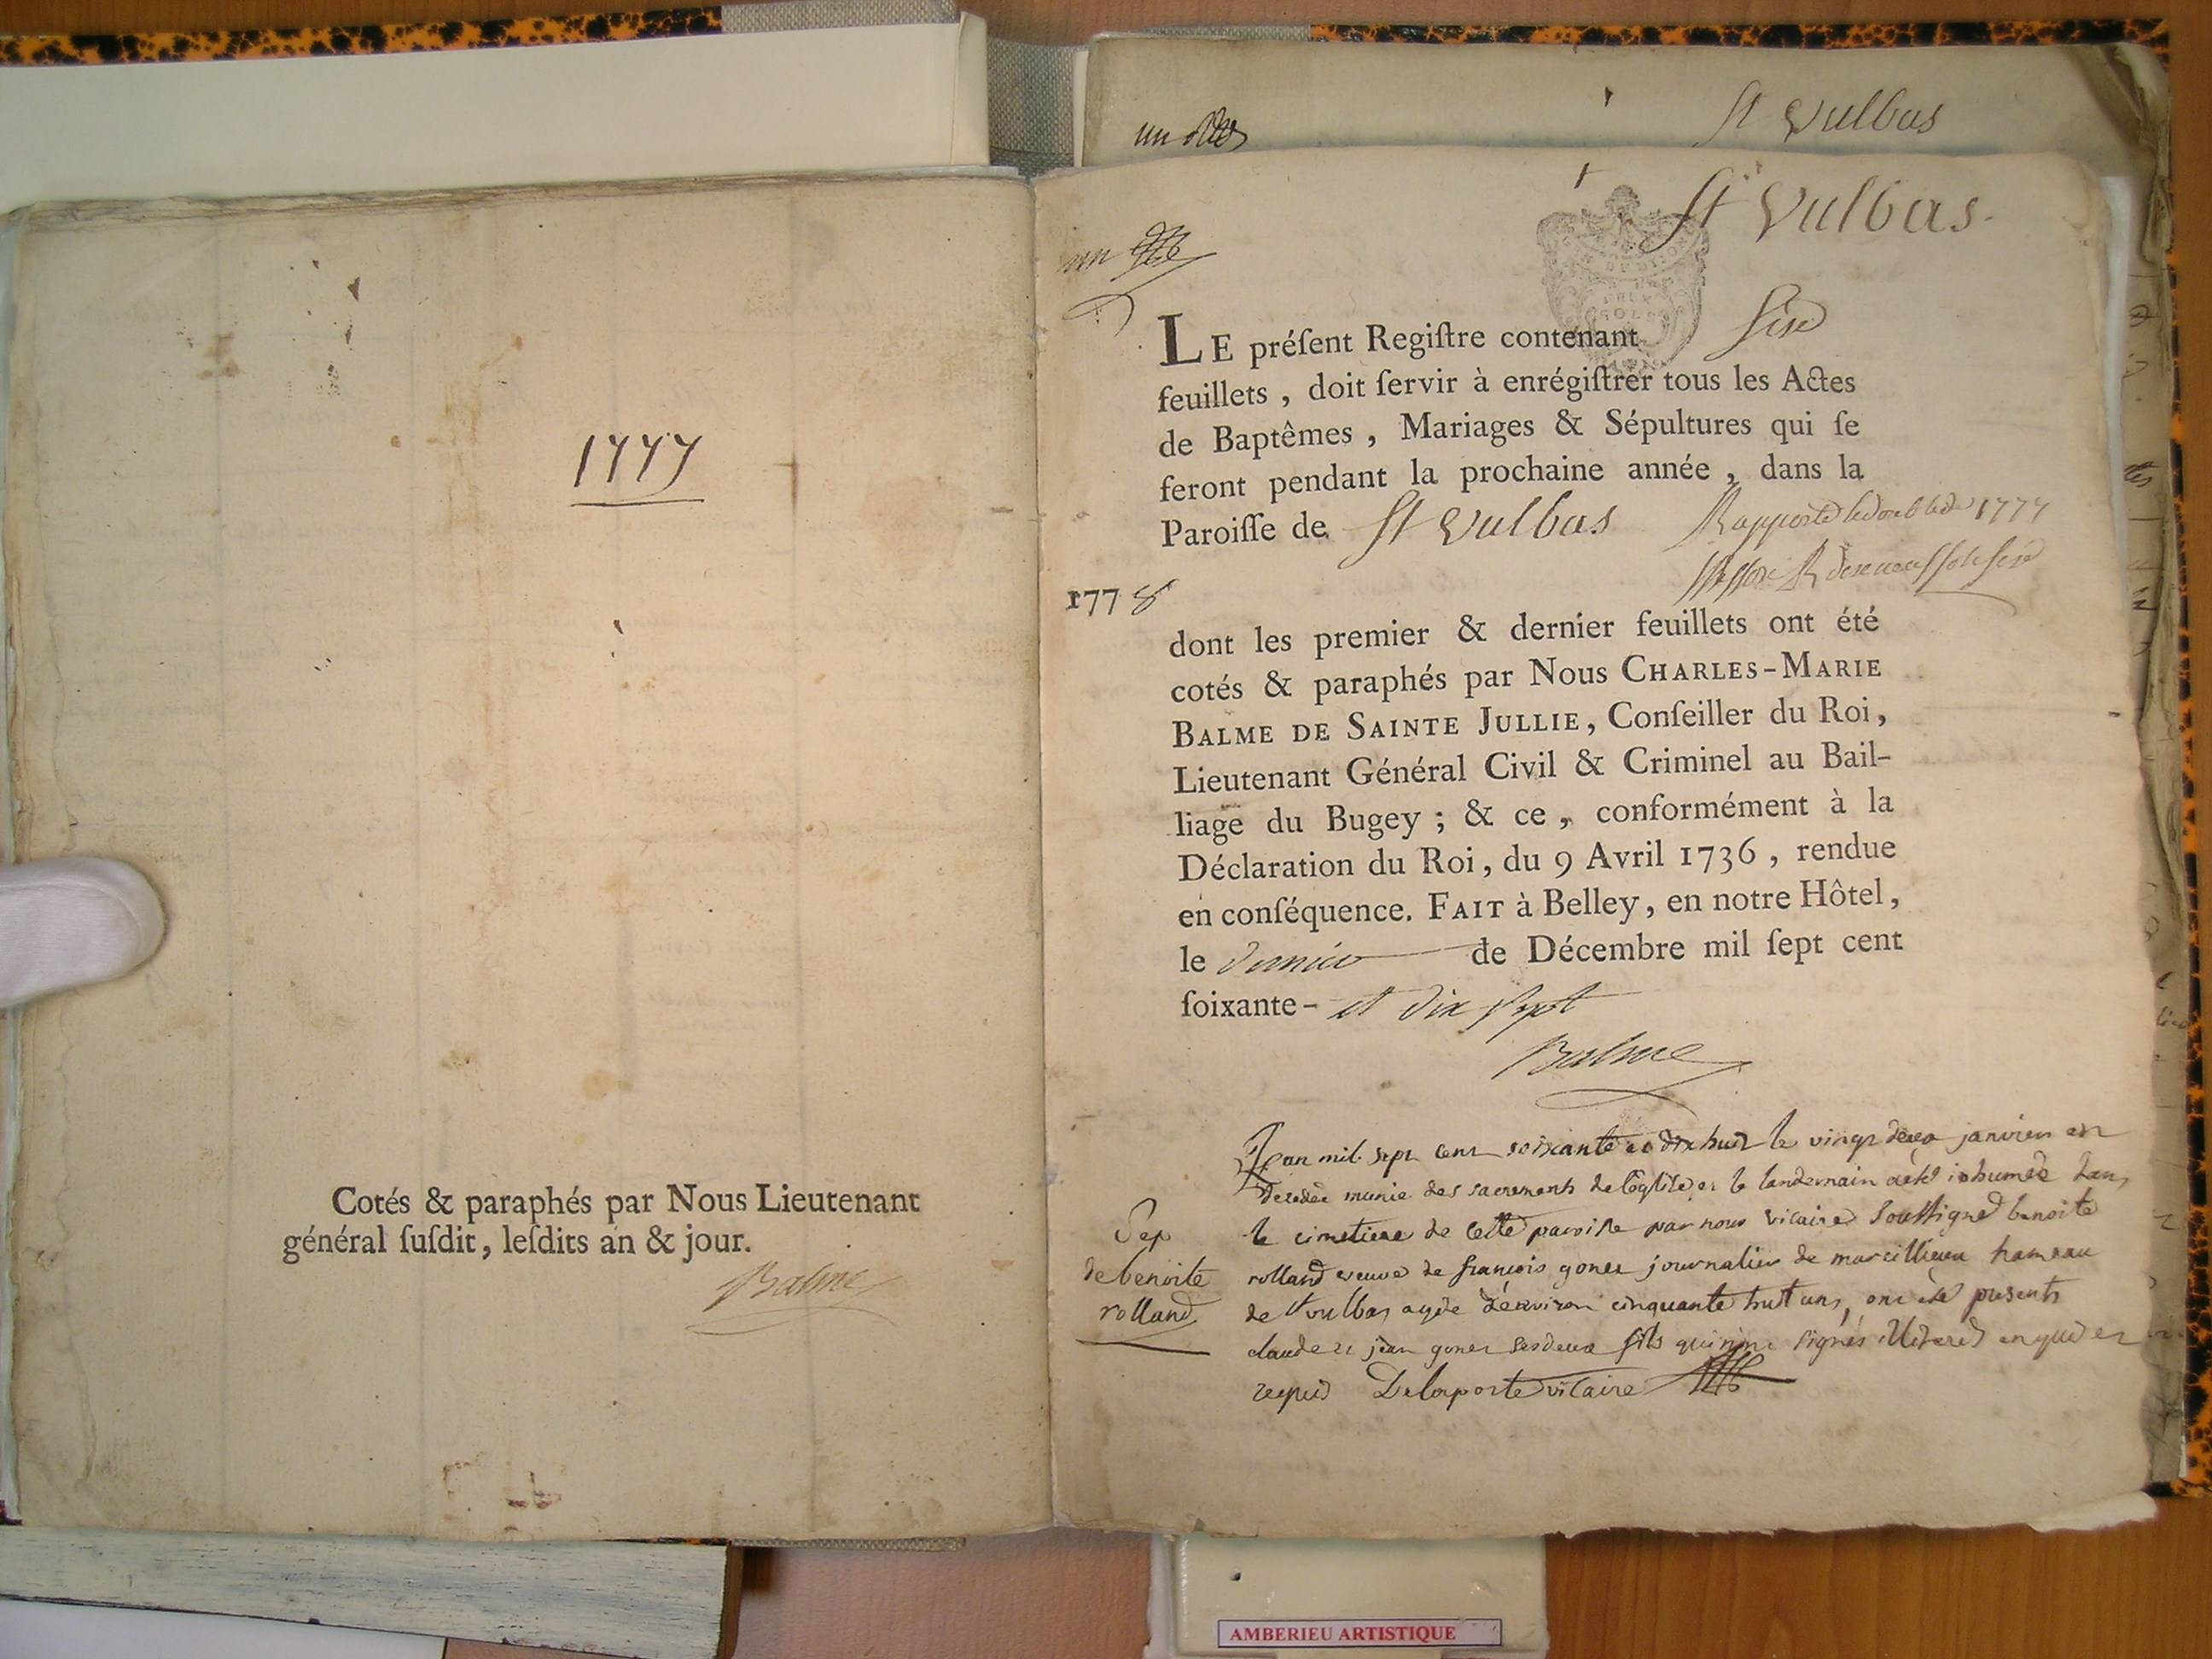 1777
Cotés & paraphés par Nous Lieutenant
général ſuſdit, leſdits an & jour.
Balme
un
St Vulbas
un
St Vulbas.
LE préſent Regiſtre contenant
feuillets, doit ſervir à enrégiſtrer tous les Actes
de Baptêmes, Mariages & Sépultures qui ſe
feront pendant la prochaine année, dans la
Paroiſſe de St Vulbas
Rapporté le double de 1777
1778
dont les premier & dernier feuillets ont été
cotés & paraphés par Nous CHARLES-MARIE
BALME DE SAINTE JULLIE, Conſeiller du Roi,
Lieutenant Général Civil & Criminel au Bail-
liage du Bugey; & ce, conformément à la
Déclaration du Roi, du 9 Avril 1736, rendue
en conſéquence. FAIT à Belley, en notre Hôtel,
le dernier de Décembre mil ſept cent
ſoixante- et dix sept
Balme
Sep
de benoite
rolland
L'an mil sept cent soixante et dix huit le vingt deux janvier est
decedée munie des sacrements de l'Eglise, et le landemain a été inhumée dans
le cimetiere de cette paroisse par nous vicaire soussigné benoite
rolland veuve de francois gonet journalier de marcillieux hameau
de st vulbas agée d'environ cinquante huit ans, ont été presents
claude et jean gonet ses deux fils qui n'ont signés illiterés enquis et
requis Delaporte vicaire
AMBERIEU ARTISTIQUE